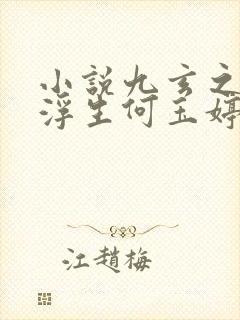 小說九玄之
浮生何玉婷
江趙梅